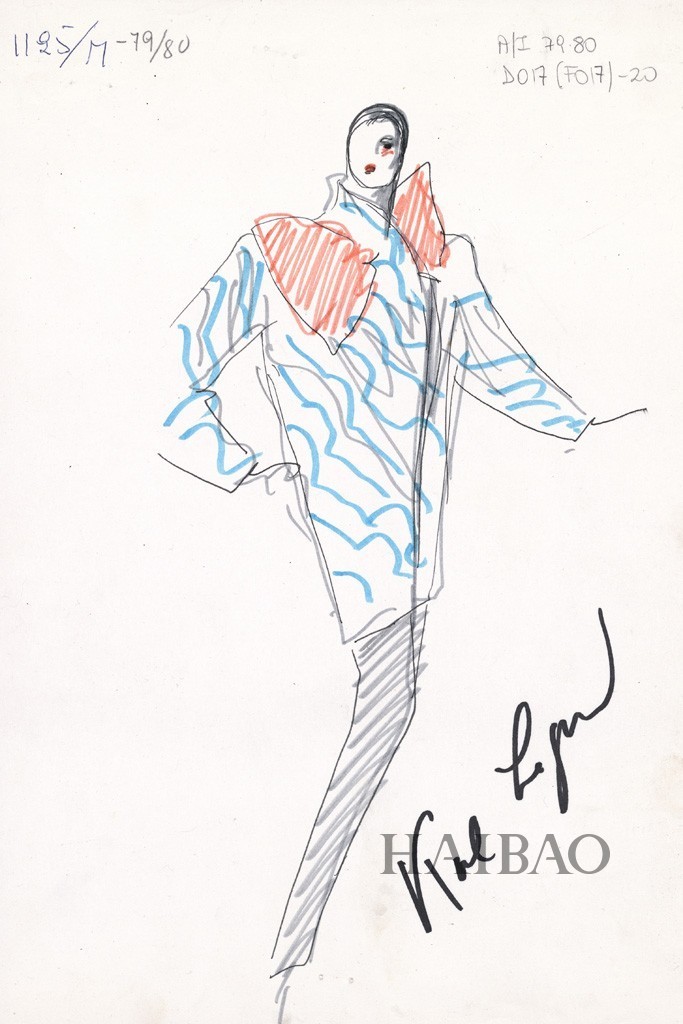 1125/M-79/80
A/I 79.80
D017 (F017)-20
Karl Lagerfeld
HAIBAO